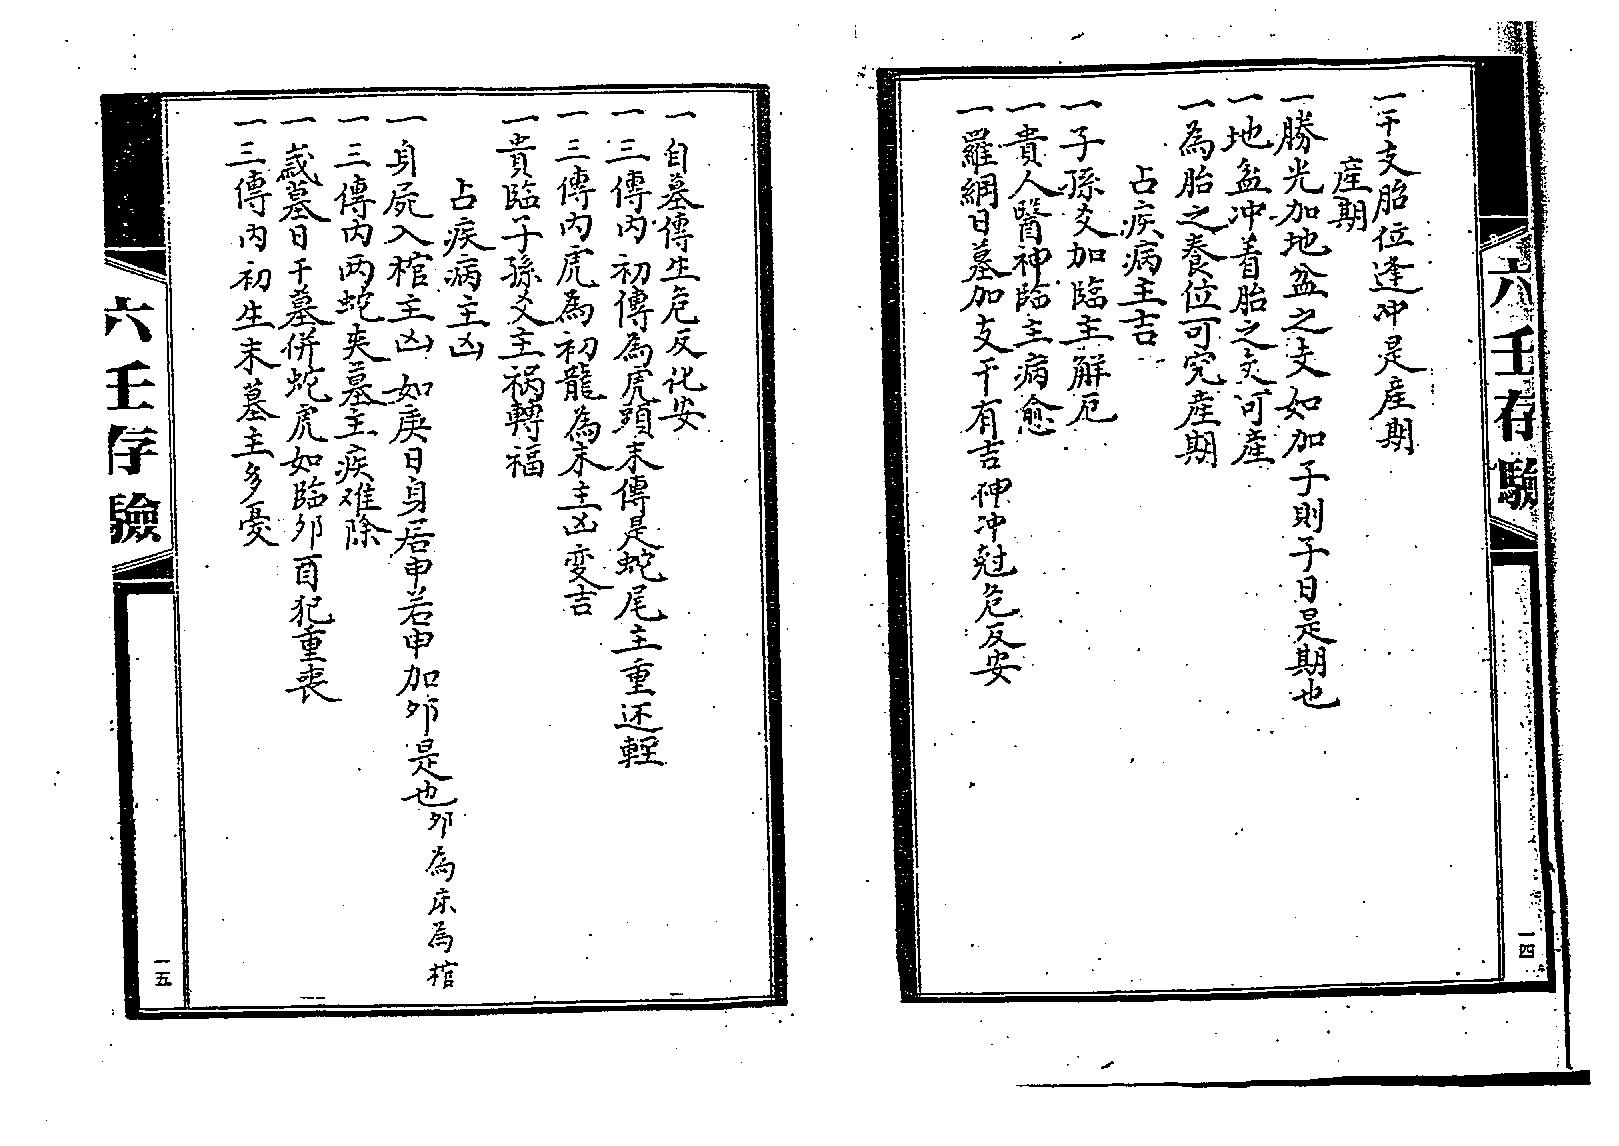 六壬存驗
一四
一干支胎位逢冲是産期
産期
一勝光加地盆之支如加子則子日是期也
一地盆冲着胎之爻可産
一為胎之養位可完産期
占疾病主吉
一子孫爻加臨主解厄
一貴人醫神臨主病愈
一羅網日墓加支干有吉神冲尅危反安
一自墓傳生危反化安
一三傳内初傳為虎頭末傳是蛇尾主重还輕
一三傳内虎為初龍為末主凶变吉
一貴臨子孫爻主禍轉福
占疾病主凶
一身屍入棺主凶如庚日身居申若申加夘是也夘為床為棺
一三傳内两蛇夹墓主疾难除
一歲墓日干墓併蛇虎如臨夘酉犯重喪
一三傳内初生末墓主多憂
六壬存驗
一五